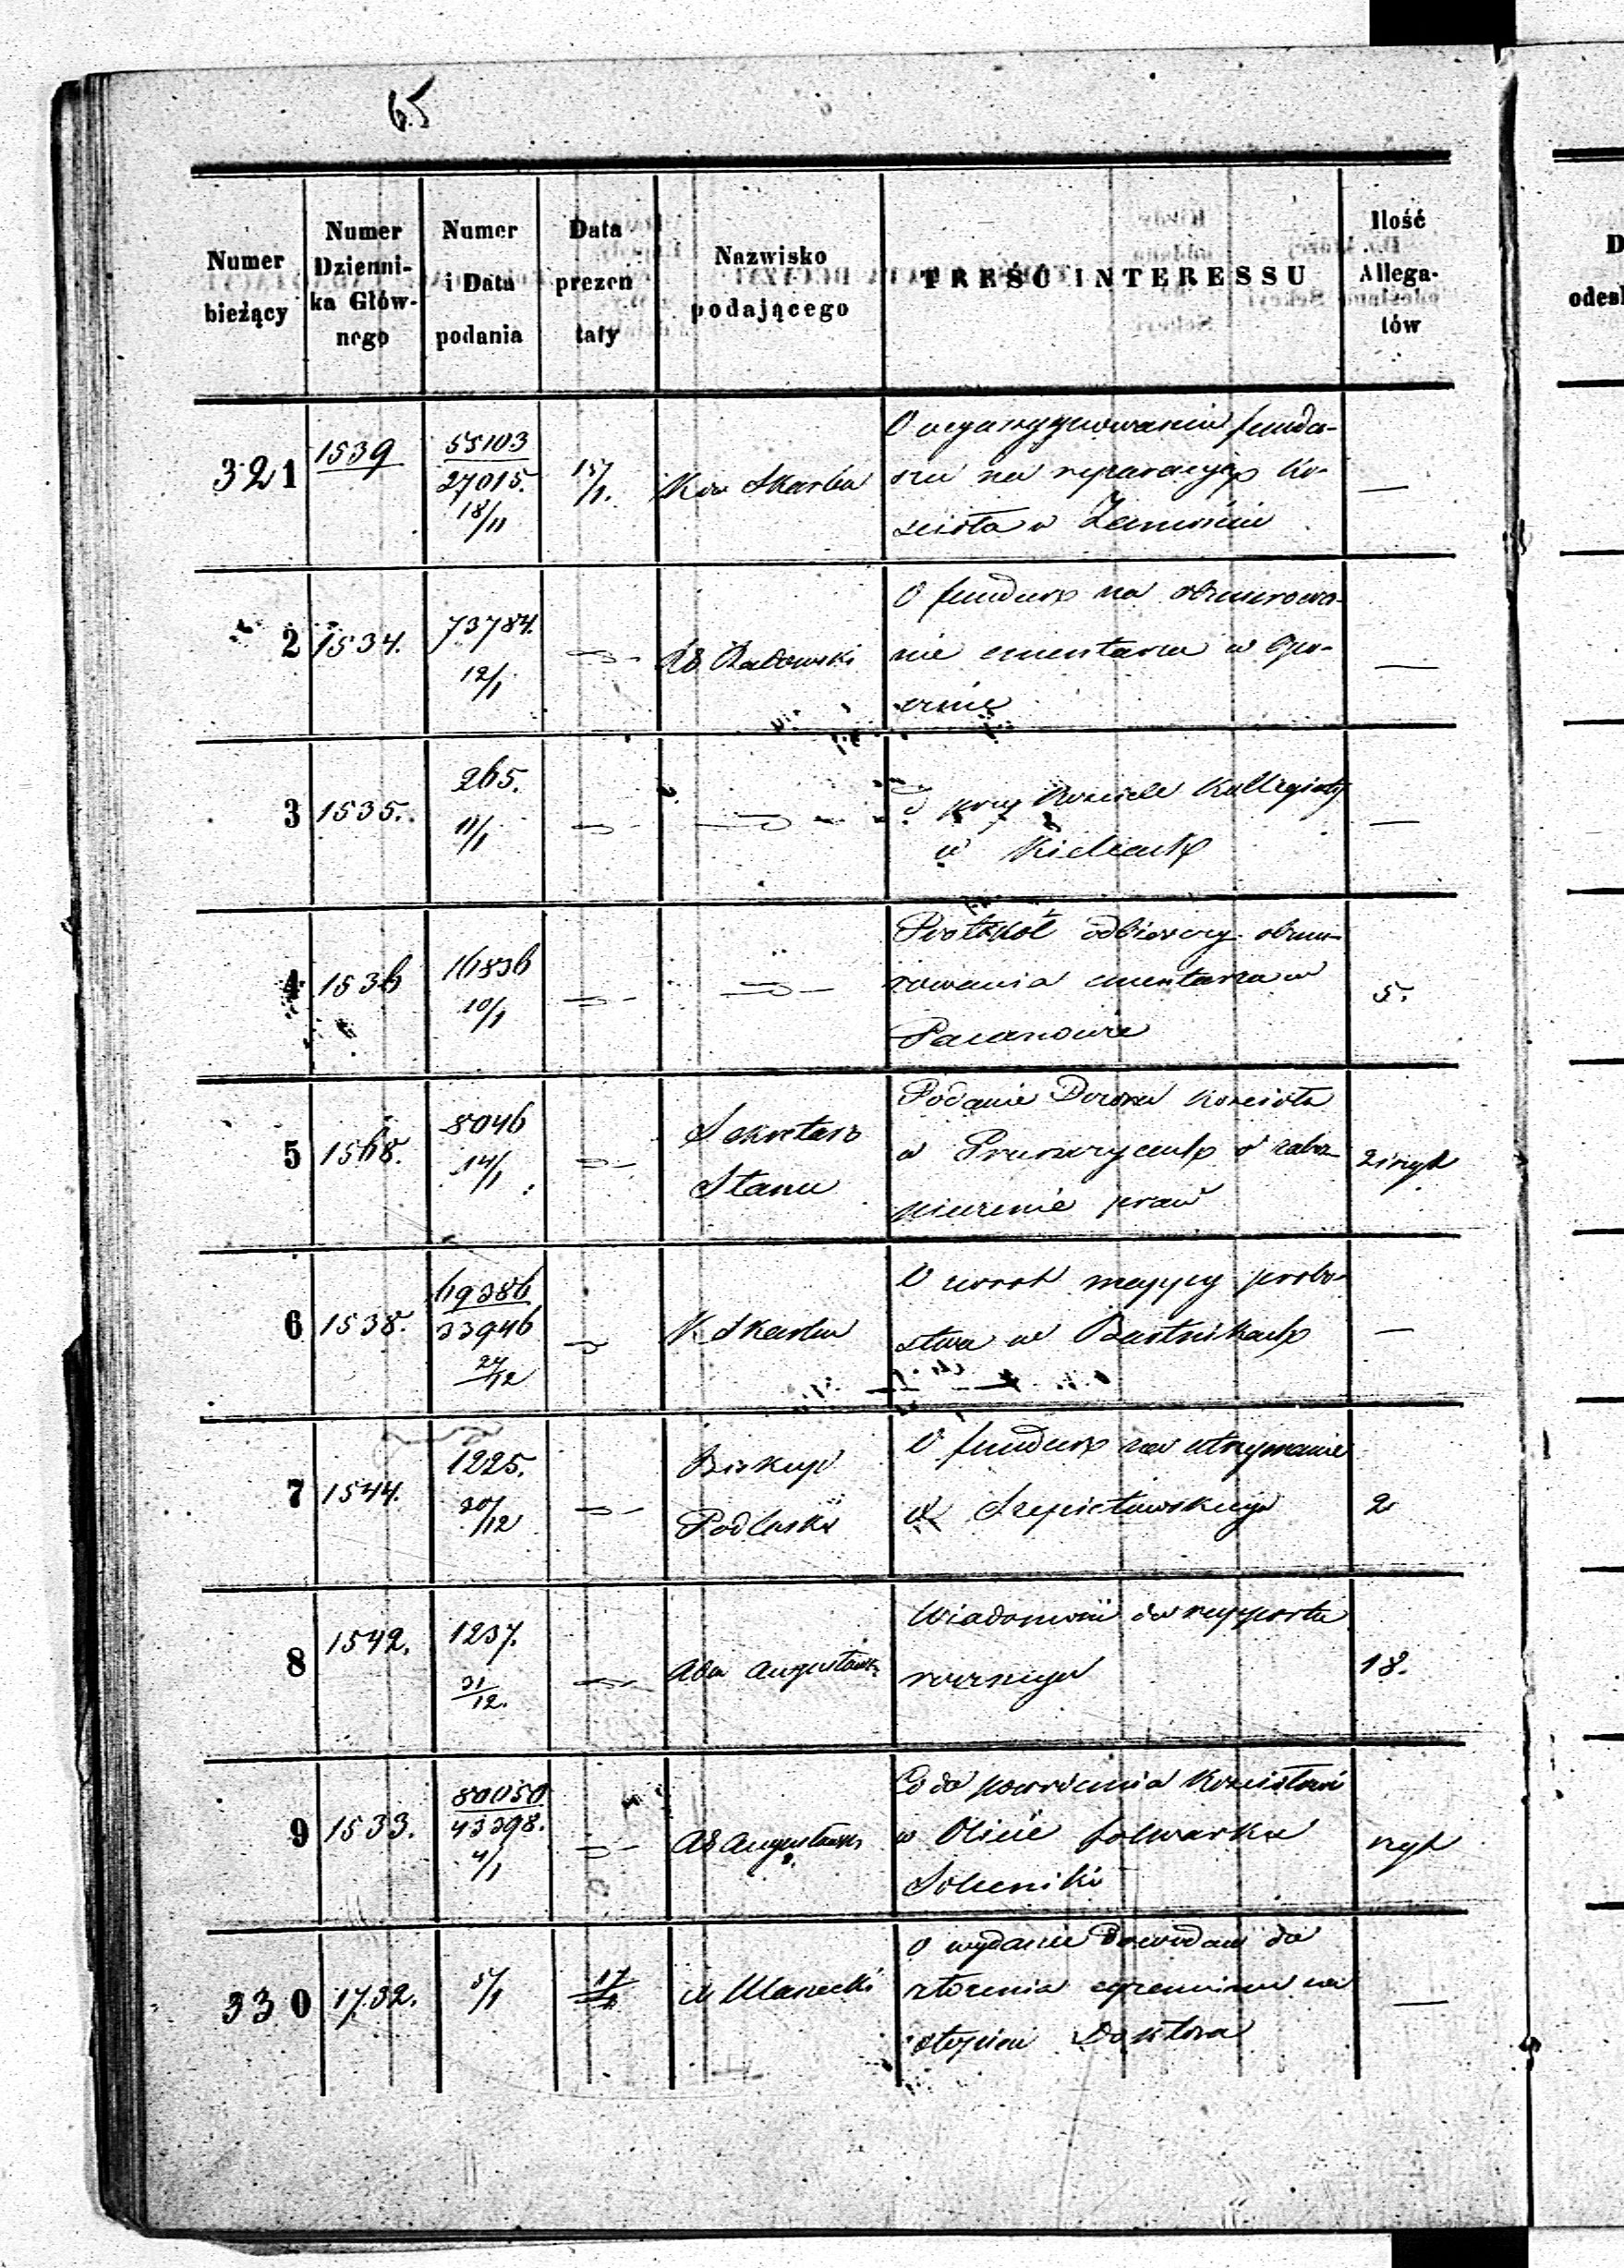 65
Numer bieżący
Numer Dzienni-ka Głów-nego
Numer i Data podania
Data prezen taty
Nazwisko podającego
TREŚĆ INTERESSU
Ilość Allega-tów
321
1539
55103
27015.
18/11
15/1.
Kom Skarbu
O wegzygnowanie fundu-
szu na reparacyją Ko-
ścioła w Zamościu
—
2
1534.
73784.
12/1
O fundusz na obmurowa-
nie cmentarza w Opa-
—
3
1535.
265.
11/1
przy Kościele Kollegiaty
w Kielcach
—
4
1536
16836
10/1
Protokół odbiorczy obmu-
rowania cmentarza w
Pacanowie
5.
5
1568.
8046
14/1
Sekretarz
Stanu
Podanie Dozoru Kościoła
w o zabez-
pieczenie praw
2 i ryk
6
1538.
69386
33946
24/12
K Skarbu
O zwrot probo-
stwa w Bartnikach
—
7
1544.
1225.
30/12
Biskup
Podlaski
O fundusz na utrzymanie
X Szepietowskiego
2
8
1542.
1237.
31/12.
Adm Augustowski
Wiadomości do rapportu
rocznego
18.
9
1533.
80050
43398.
4/1
AD Augustowski
Co do powrócenia Kościołowi
w Olicie folwarku
Soleniki
ryk
330
1732.
5/1
17/1
O wydanie Dowodów do
złożenia egzaminu na
stopień Doktora
—